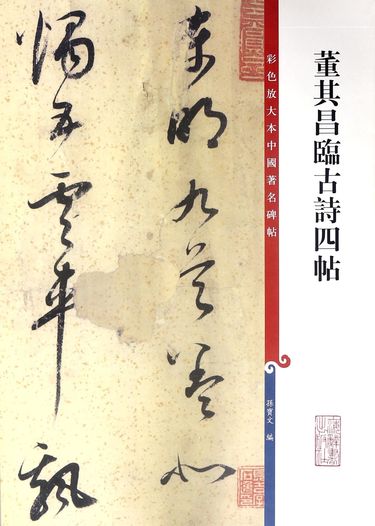 董其昌臨古詩四帖
彩色放大本中國著名碑帖
孫寶文 編
東明九芝蓋北
燭五雲車飄